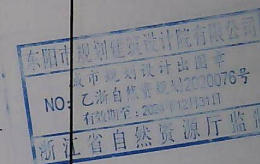 东阳市规划建筑设计院有限公司
城市规划设计出图章
NO:乙浙自然资规划2020076号
有效期至:2020年12月31日
浙江省自然资源厅监